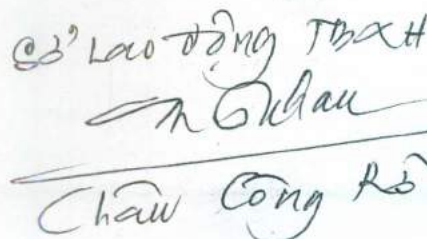 Sở Lao động TBXH
Châu Công Rô